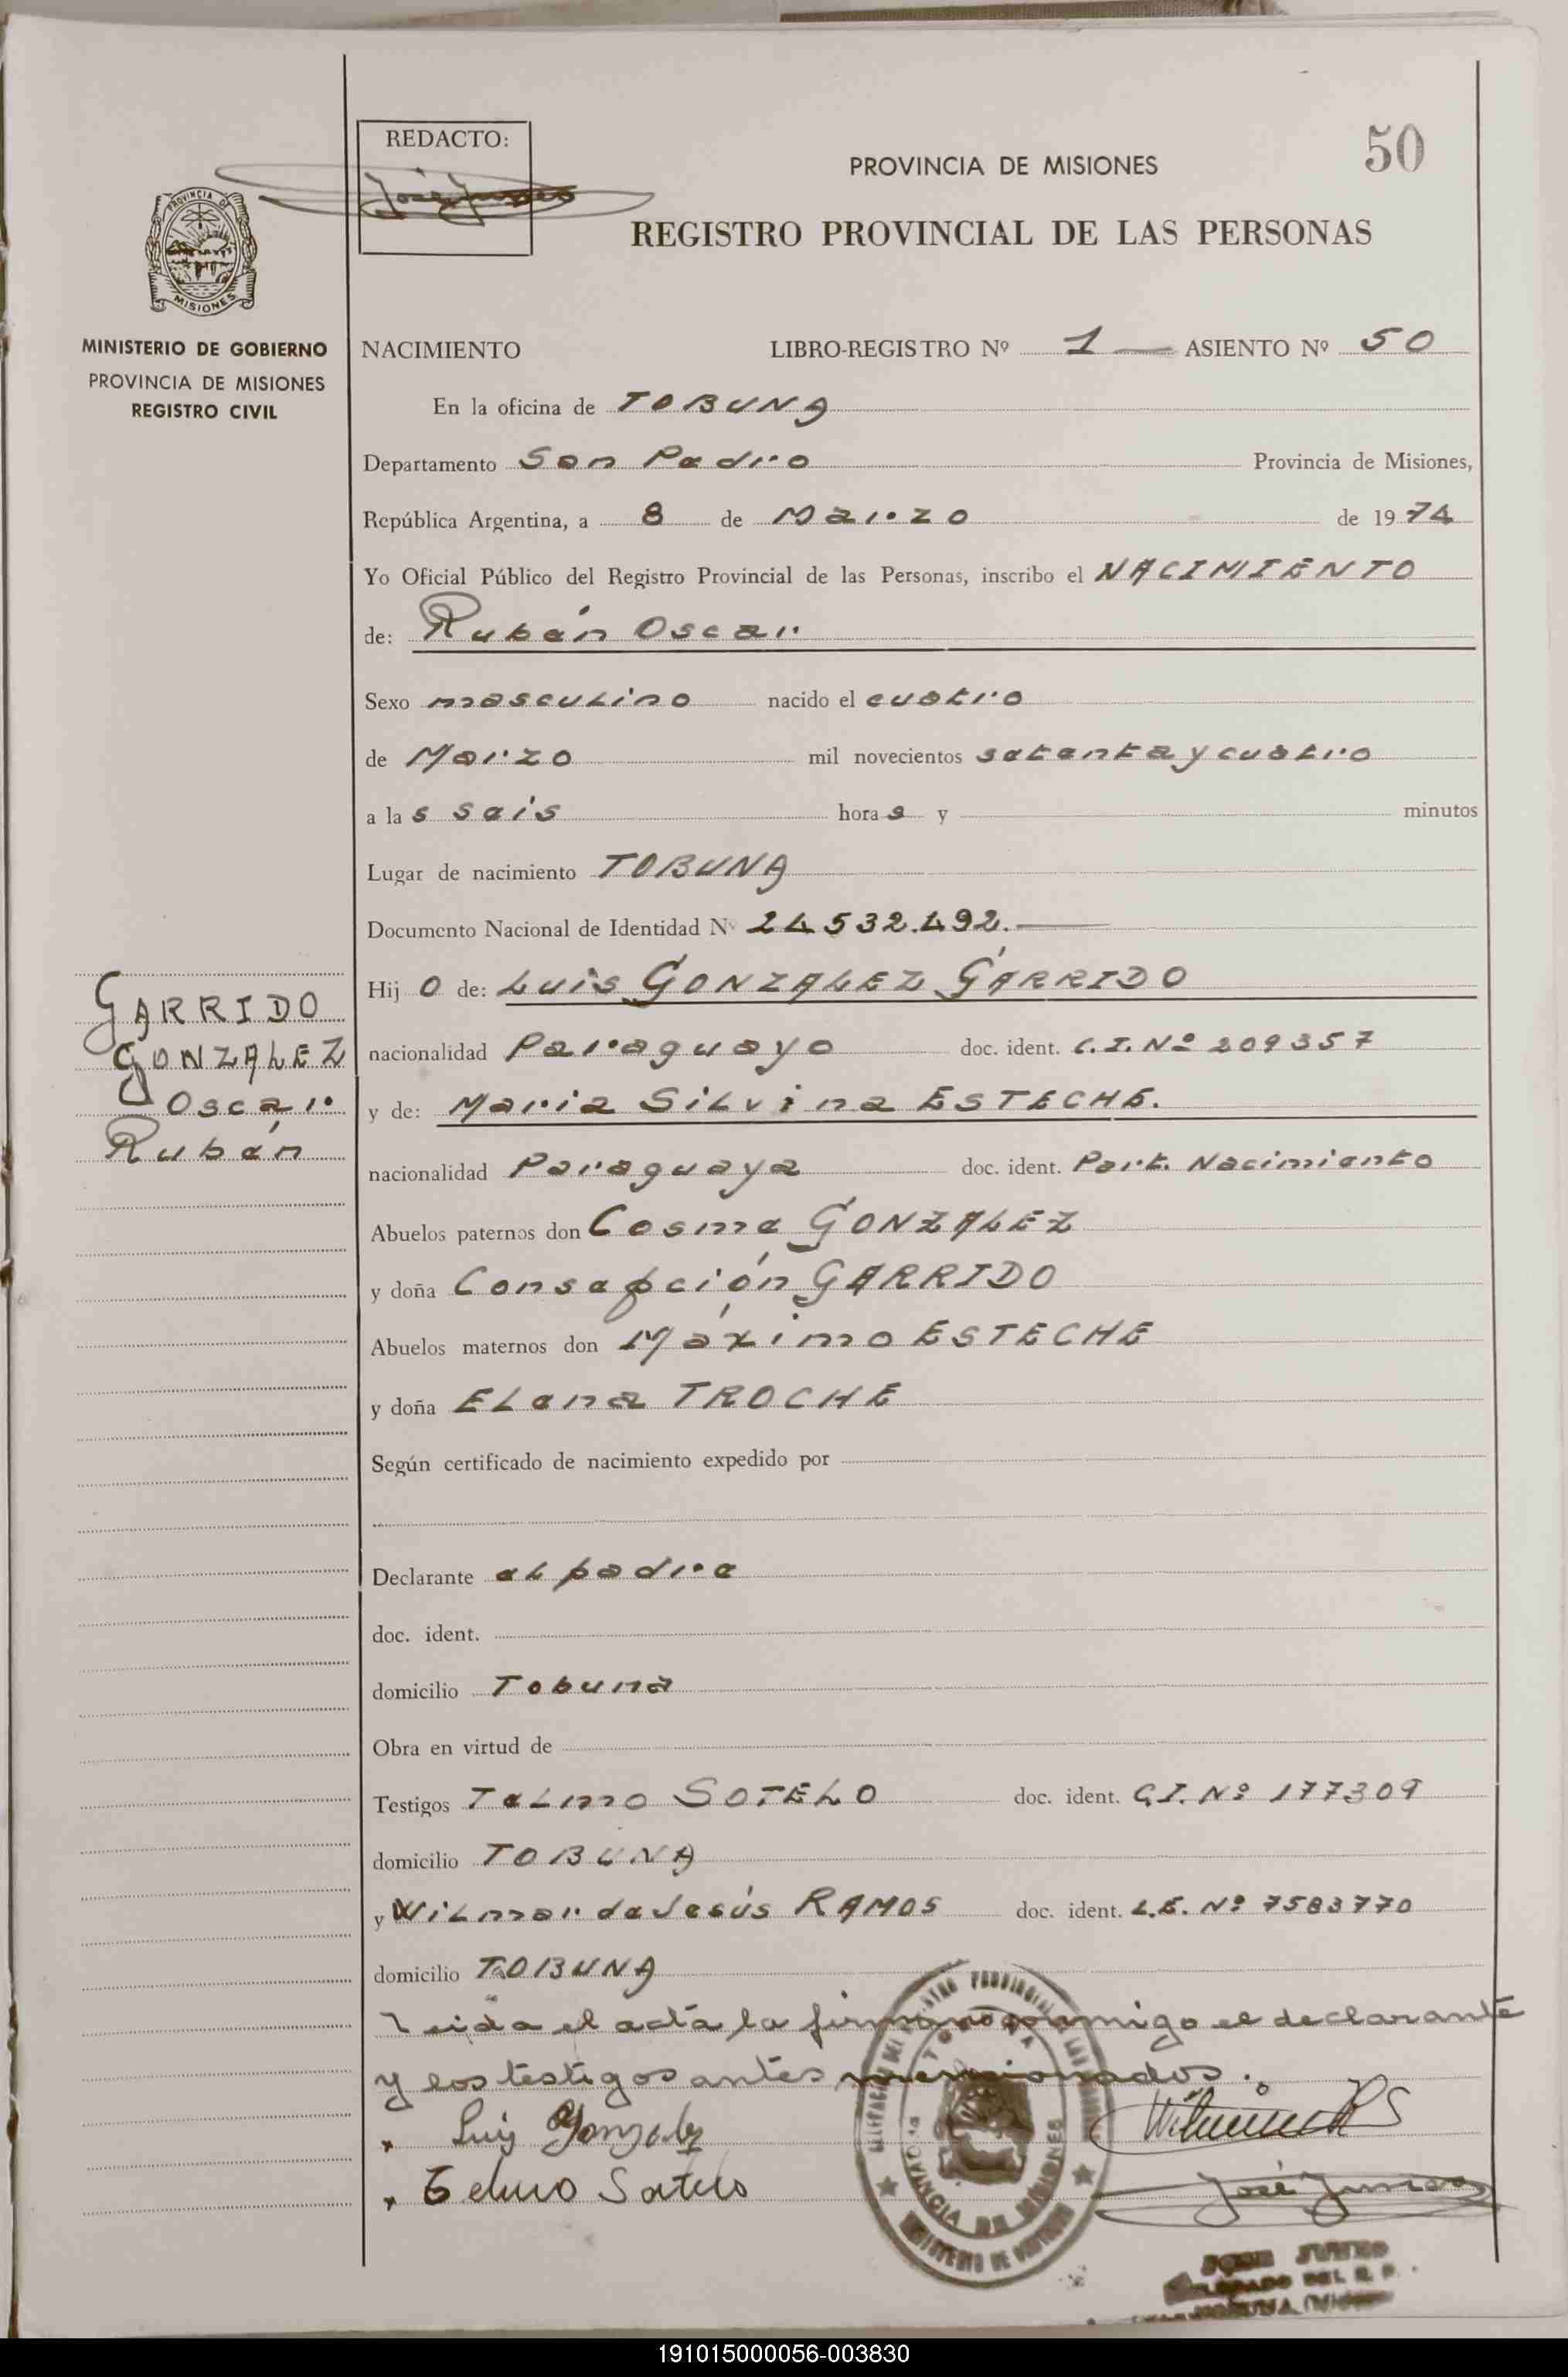 50
REDACTO:
PROVINCIA DE MISIONES
REGISTRO PROVINCIAL DE LAS PERSONAS
PROVINCIA DE
MISIONES
MINISTERIO DE GOBIERNO
PROVINCIA DE MISIONES
REGISTRO CIVIL
NACIMIENTO LIBRO-REGISTRO Nº 1 — ASIENTO Nº 50
En la oficina de TOBUNA
Departamento San Pedro Provincia de Misiones,
República Argentina, a 8 de Marzo de 1974
Yo Oficial Público del Registro Provincial de las Personas, inscribo el NACIMIENTO
de: Rubén Oscar
Sexo masculino nacido el cuatro
de Marzo mil novecientos setenta y cuatro
a las seis horas y minutos
Lugar de nacimiento TOBUNA
Documento Nacional de Identidad Nº 24532.492.—
Hijo de: Luis GONZALEZ GARRIDO
nacionalidad Paraguayo doc. ident. C.I. Nº 209357
y de: Maria Silvina ESTECHE.
nacionalidad Paraguaya doc. ident. Part. Nacimiento
Abuelos paternos don Cosme GONZALEZ
y doña Consepción GARRIDO
Abuelos maternos don Máximo ESTECHE
y doña Elena TROCHE
Según certificado de nacimiento expedido por
Declarante el padre
doc. ident.
domicilio Tobuna
Obra en virtud de
Testigos Telmo SOTELO doc. ident. C.I. Nº 177309
domicilio TOBUNA
y Wilmar de Jesús RAMOS doc. ident. L.E. Nº 7583770
domicilio TOBUNA
Leida el acta la firman conmigo el declarante
y los testigos antes mencionados.
Luis Gonzalez
Telmo Sotelo
José
GARRIDO
GONZALEZ
Oscar
Rubén
PROVINCIA DE MISIONES
191015000056-003830